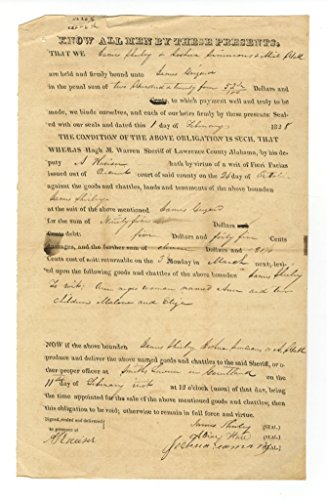 KNOW ALL MEN BY THESE PRESENTS,
THAT WE James Shirley & Joshua Simmons &
are held and firmly bound unto James
in the penal sum of Two Hundred & twenty four 53 3/4/100 Dollars and
Cents, to which payment well and truly to be
made, we binde ourselves, and each of our heirs firmly by these presents: Sealed
with our seals and dated this 1 day of February 1838
THE CONDITION OF THE ABOVE OBLIGATION IS SUCH, THAT
WHEREAS Hugh M. Warren Sheriff of Lawrence County Alabama, by his deputy
A hath by virtue of a writ of Fieri Facias
issued out of Circuit court of said county on the 20 day of
against the goods and chattles, lands and tenements of the above bounden
James Shirley
at the suit of the above mentioned James
for the sum of Ninety five Dollars
Cents debt: five Dollars and forty five Cents
damages, and the further sum of eleven Dollars and
Cents cost of suit: returnable on the 3 Monday in March next, levied
upon the following goods and chattles of the above bounden James Shirley
To wit; One negro woman named Ann and two
children Malona and Eliza
NOW if the above bounden James Shirley, Joshua Simmons &
produce and deliver the above named goods and chattles to the said Sheriff, or
other proper officer at in Courtland on the
11th day of February inst at 12 o'clock (noon) of that day, being
the time appointed for the sale of the above mentioned goods and chattles, then
this obligation to be void; otherwise to remain in full force and virtue.
Signed, sealed and delivered
in presence of
James Shirley (SEAL.)
(SEAL.)
Joshua Simmons (SEAL.)